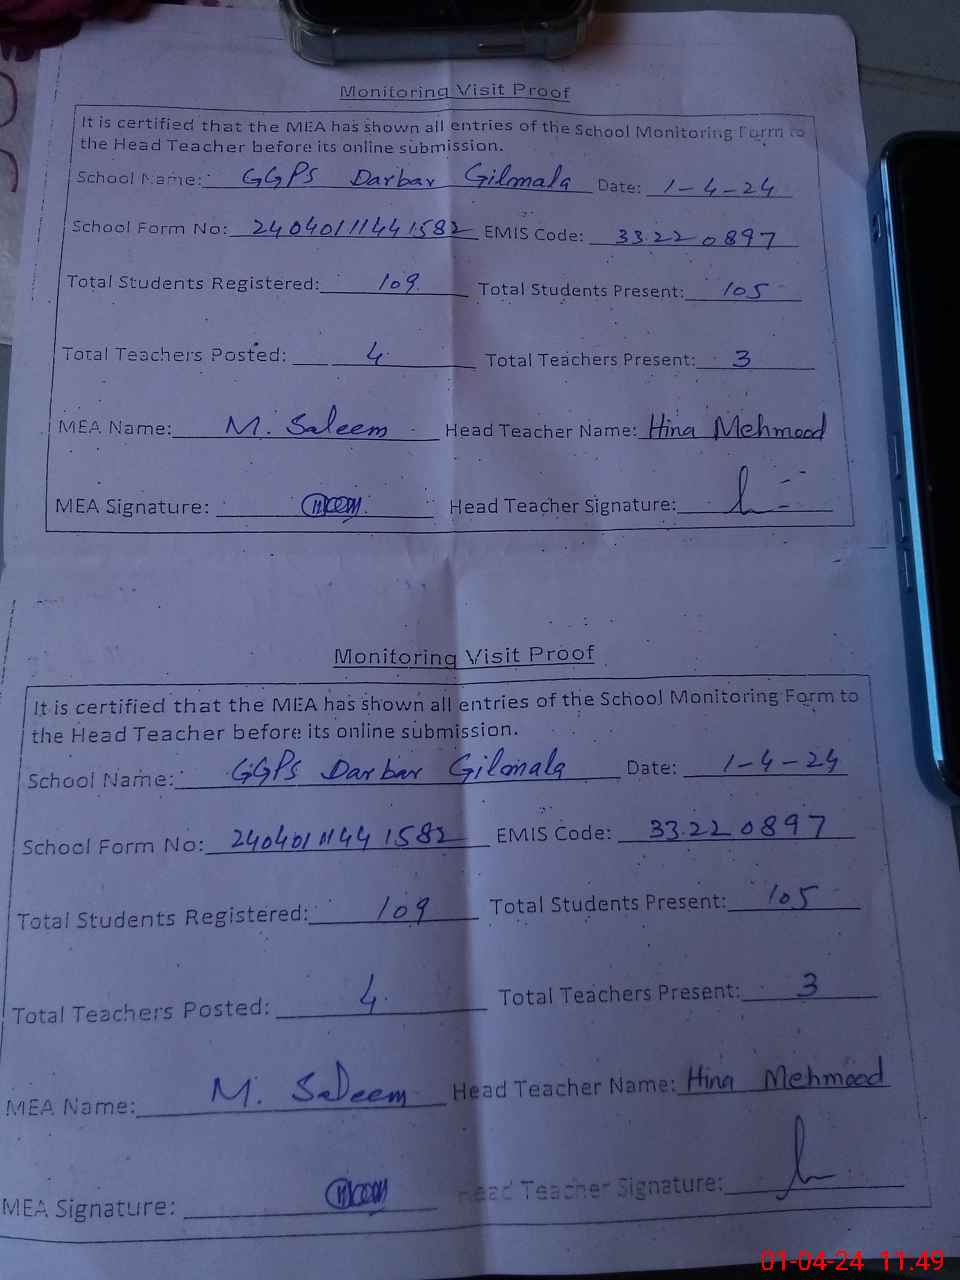 Monitoring Visit Proof
It is certified that the MEA has shown all entries of the School Monitoring Form to
the Head Teacher before its online submission.
School Name: GGPS Darbar Gilmala Date: 1-4-24
School Form No: 24040111441582 EMIS Code: 33220897
Total Students Registered: 109 Total Students Present: 105
Total Teachers Posted: 4 Total Teachers Present: 3
MEA Name: M. Saleem Head Teacher Name: Hina Mehmood
MEA Signature: Head Teacher Signature:
Monitoring Visit Proof
It is certified that the MEA has shown all entries of the School Monitoring Form to
the Head Teacher before its online submission.
School Name: GGPS Darbar Gilmala Date: 1-4-24
School Form No: 24040111441582 EMIS Code: 33220897
Total Students Registered: 109 Total Students Present: 105
Total Teachers Posted: 4 Total Teachers Present: 3
MEA Name: M. Saleem Head Teacher Name: Hina Mehmood
MEA Signature: Head Teacher Signature:
01-04-24 11.49